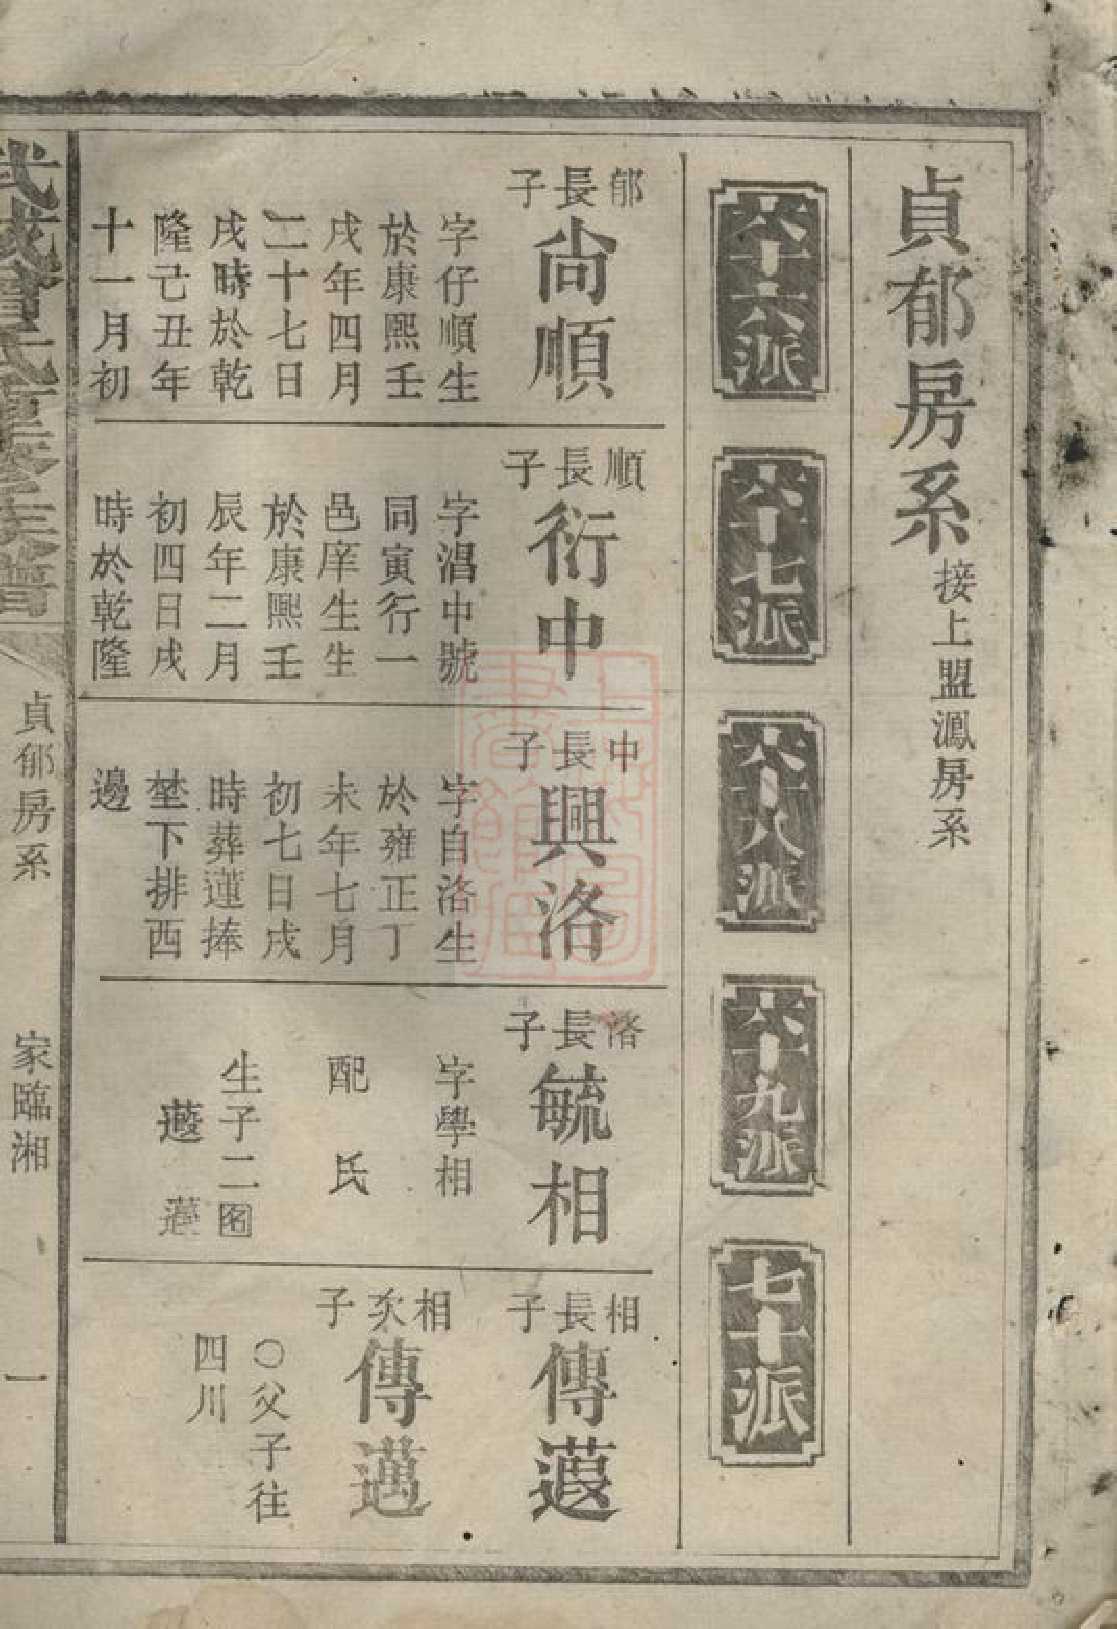 貞郁房系 接上盟鳳房系
六十六派
六十七派
六十八派
六十九派
七十派
郁長子
尙順
字仔順生
於康熙壬
戌年四月
二十七日
戌時於乾
隆己丑年
十一月初
順長子
衍中
字淐中號
同寅行一
邑庠生生
於康熙壬
辰年二月
初四日戌
時於乾隆
中長子
興洛
字自洛生
於雍正丁
未年七月
初七日戌
時葬蓮捧
埜下排西
邊
洛長子
毓相
字學相
配 氏
生子二
相長子
傳蕸
相次子
傳邁
○父子往
四川
武城曾氏重修族譜
貞郁房系
家臨湘
一